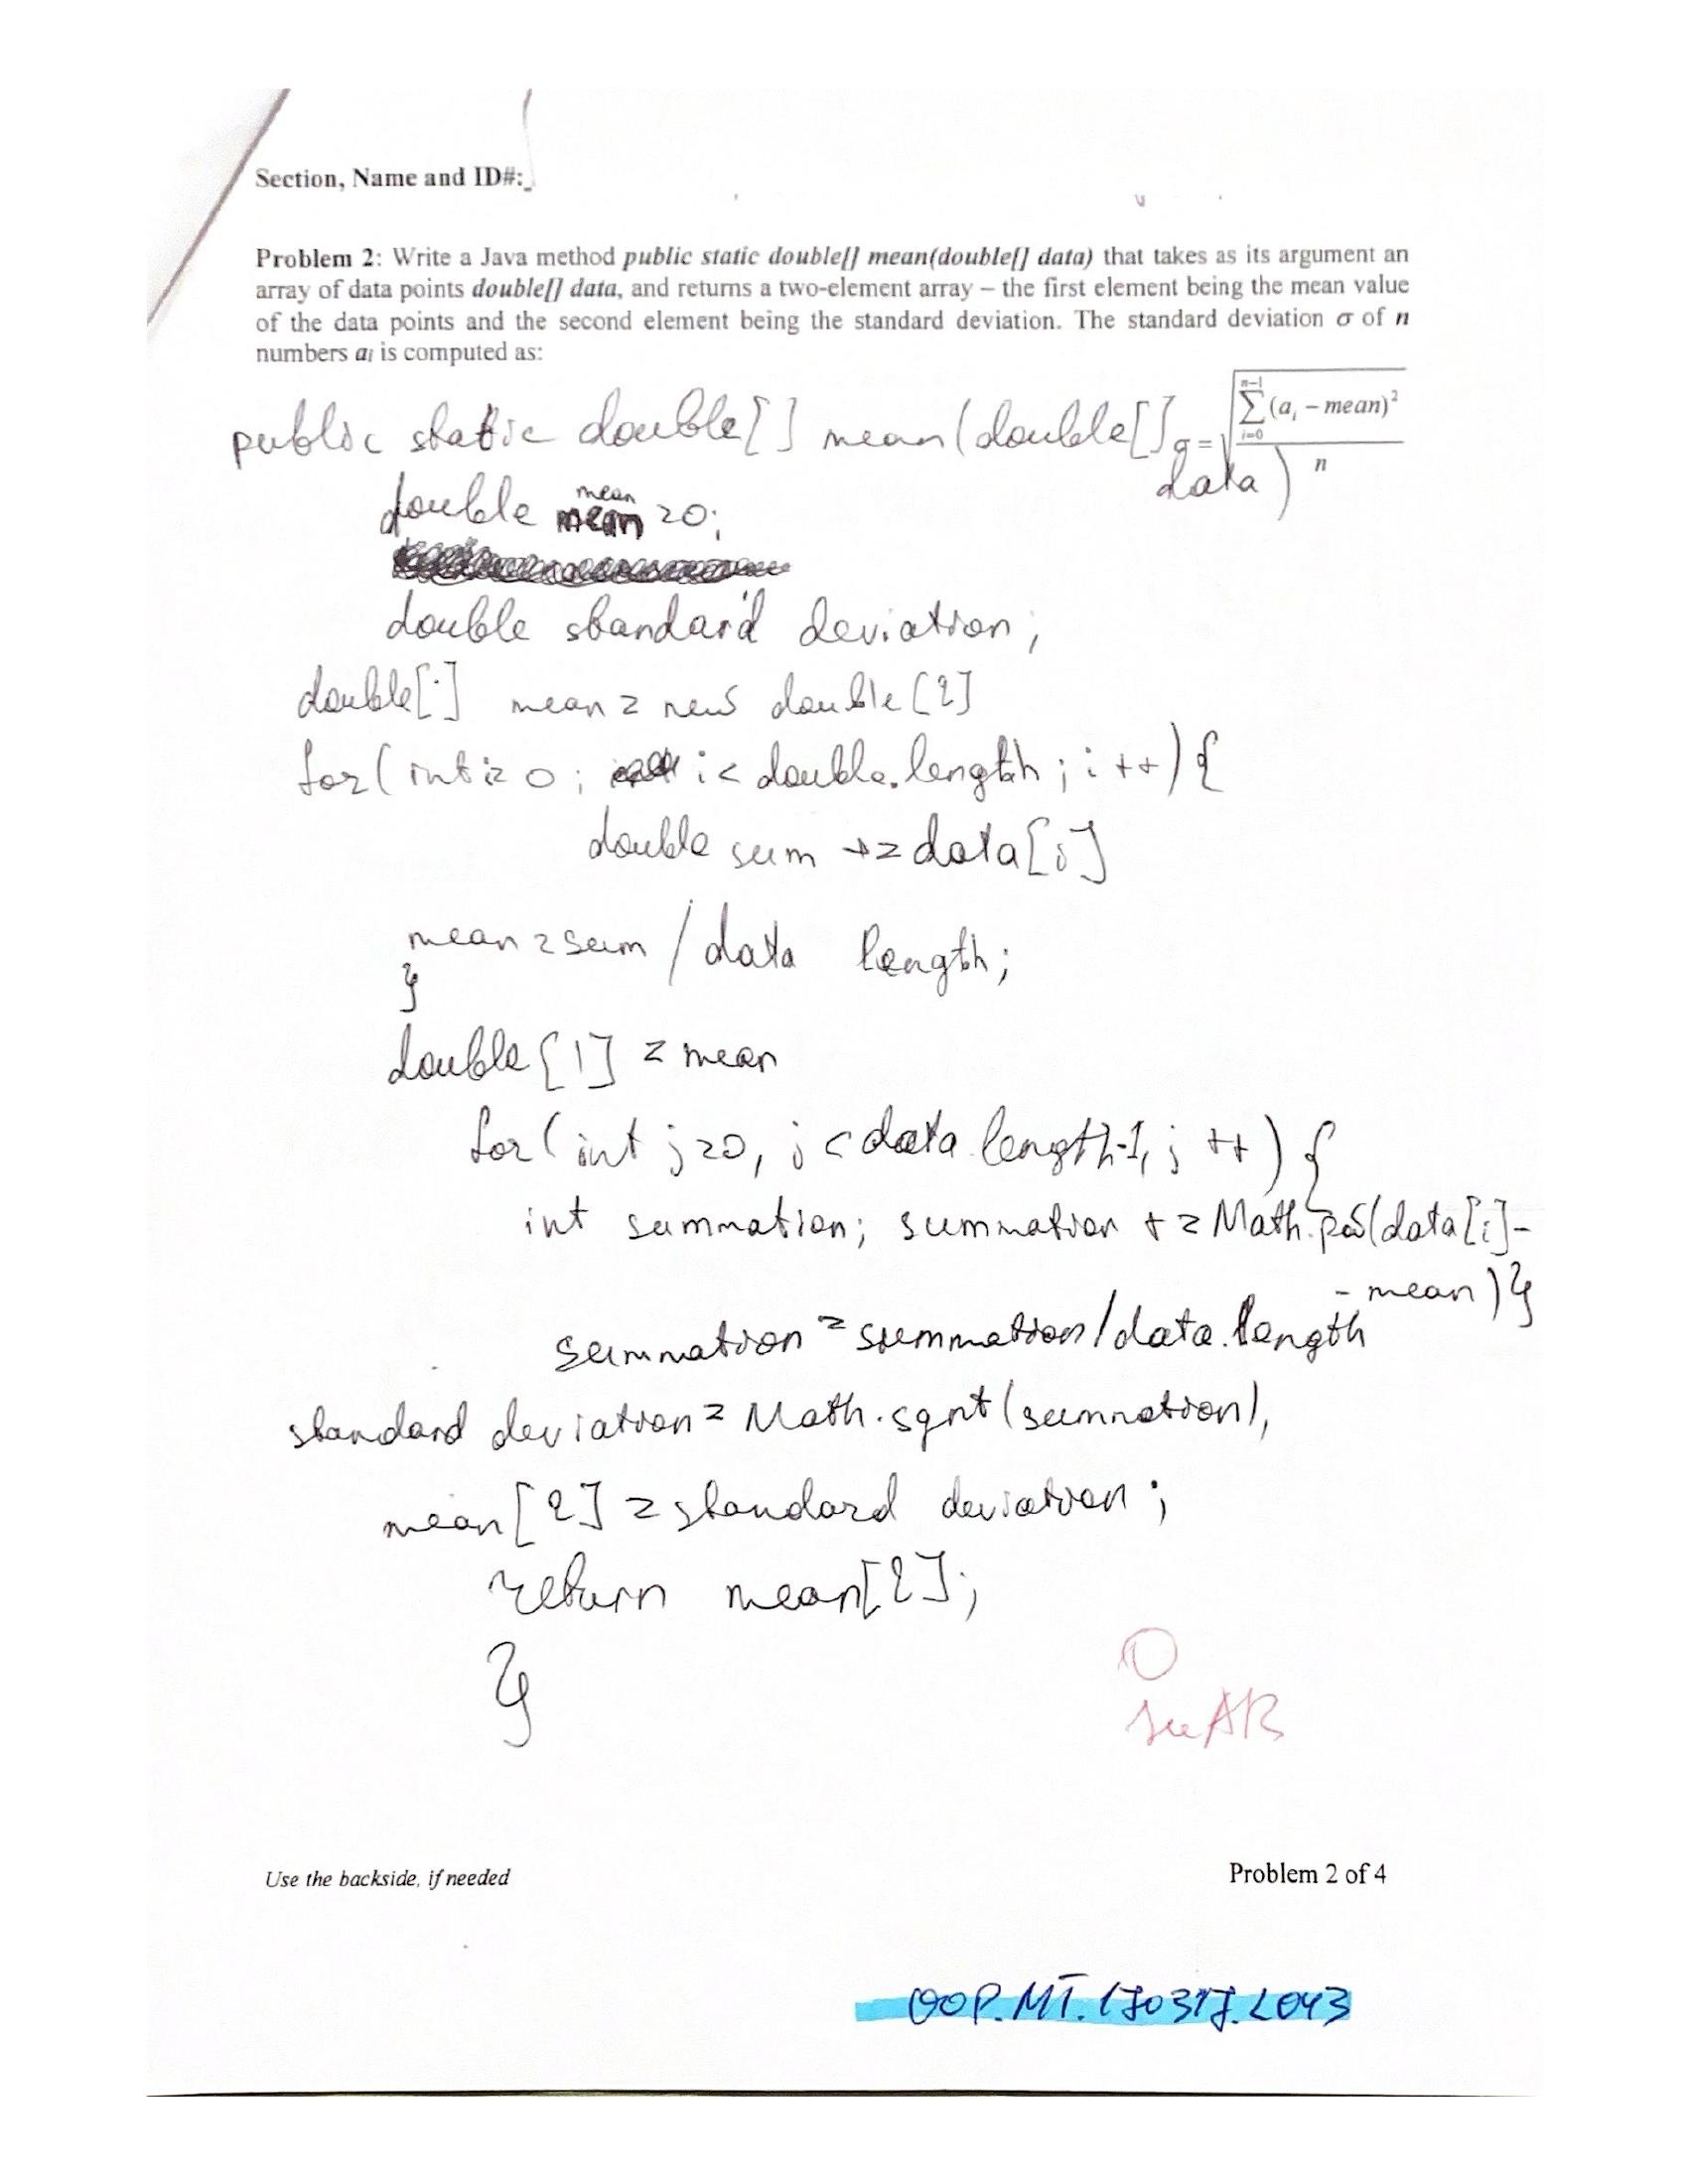 Section, Name and ID#:_
Problem 2: Write a Java method public static double[] mean(double[] data) that takes as its argument an
array of data points double[] data, and returns a two-element array – the first element being the mean value
of the data points and the second element being the standard deviation. The standard deviation σ of n
numbers aᵢ is computed as:
σ = √(∑(aᵢ – mean)² / n) i=0 n–1
public static double[] mean(double[]
data)
double mean = 0;
double standard deviation;
double[] mean = new double[2]
for(int i = 0; i < double.length; i++){
double sum += data[i]
mean = sum / data length;
}
double[1] = mean
for(int j=0, j < data.length-1, j++){
int summation; summation += Math.pow(data[i]-
- mean)}
summation = summation/data.length
standard deviation = Math.sqrt(summation),
mean[2] = standard deviation;
return mean[2];
}
Use the backside, if needed
Problem 2 of 4
OOP.MT.170317.L043